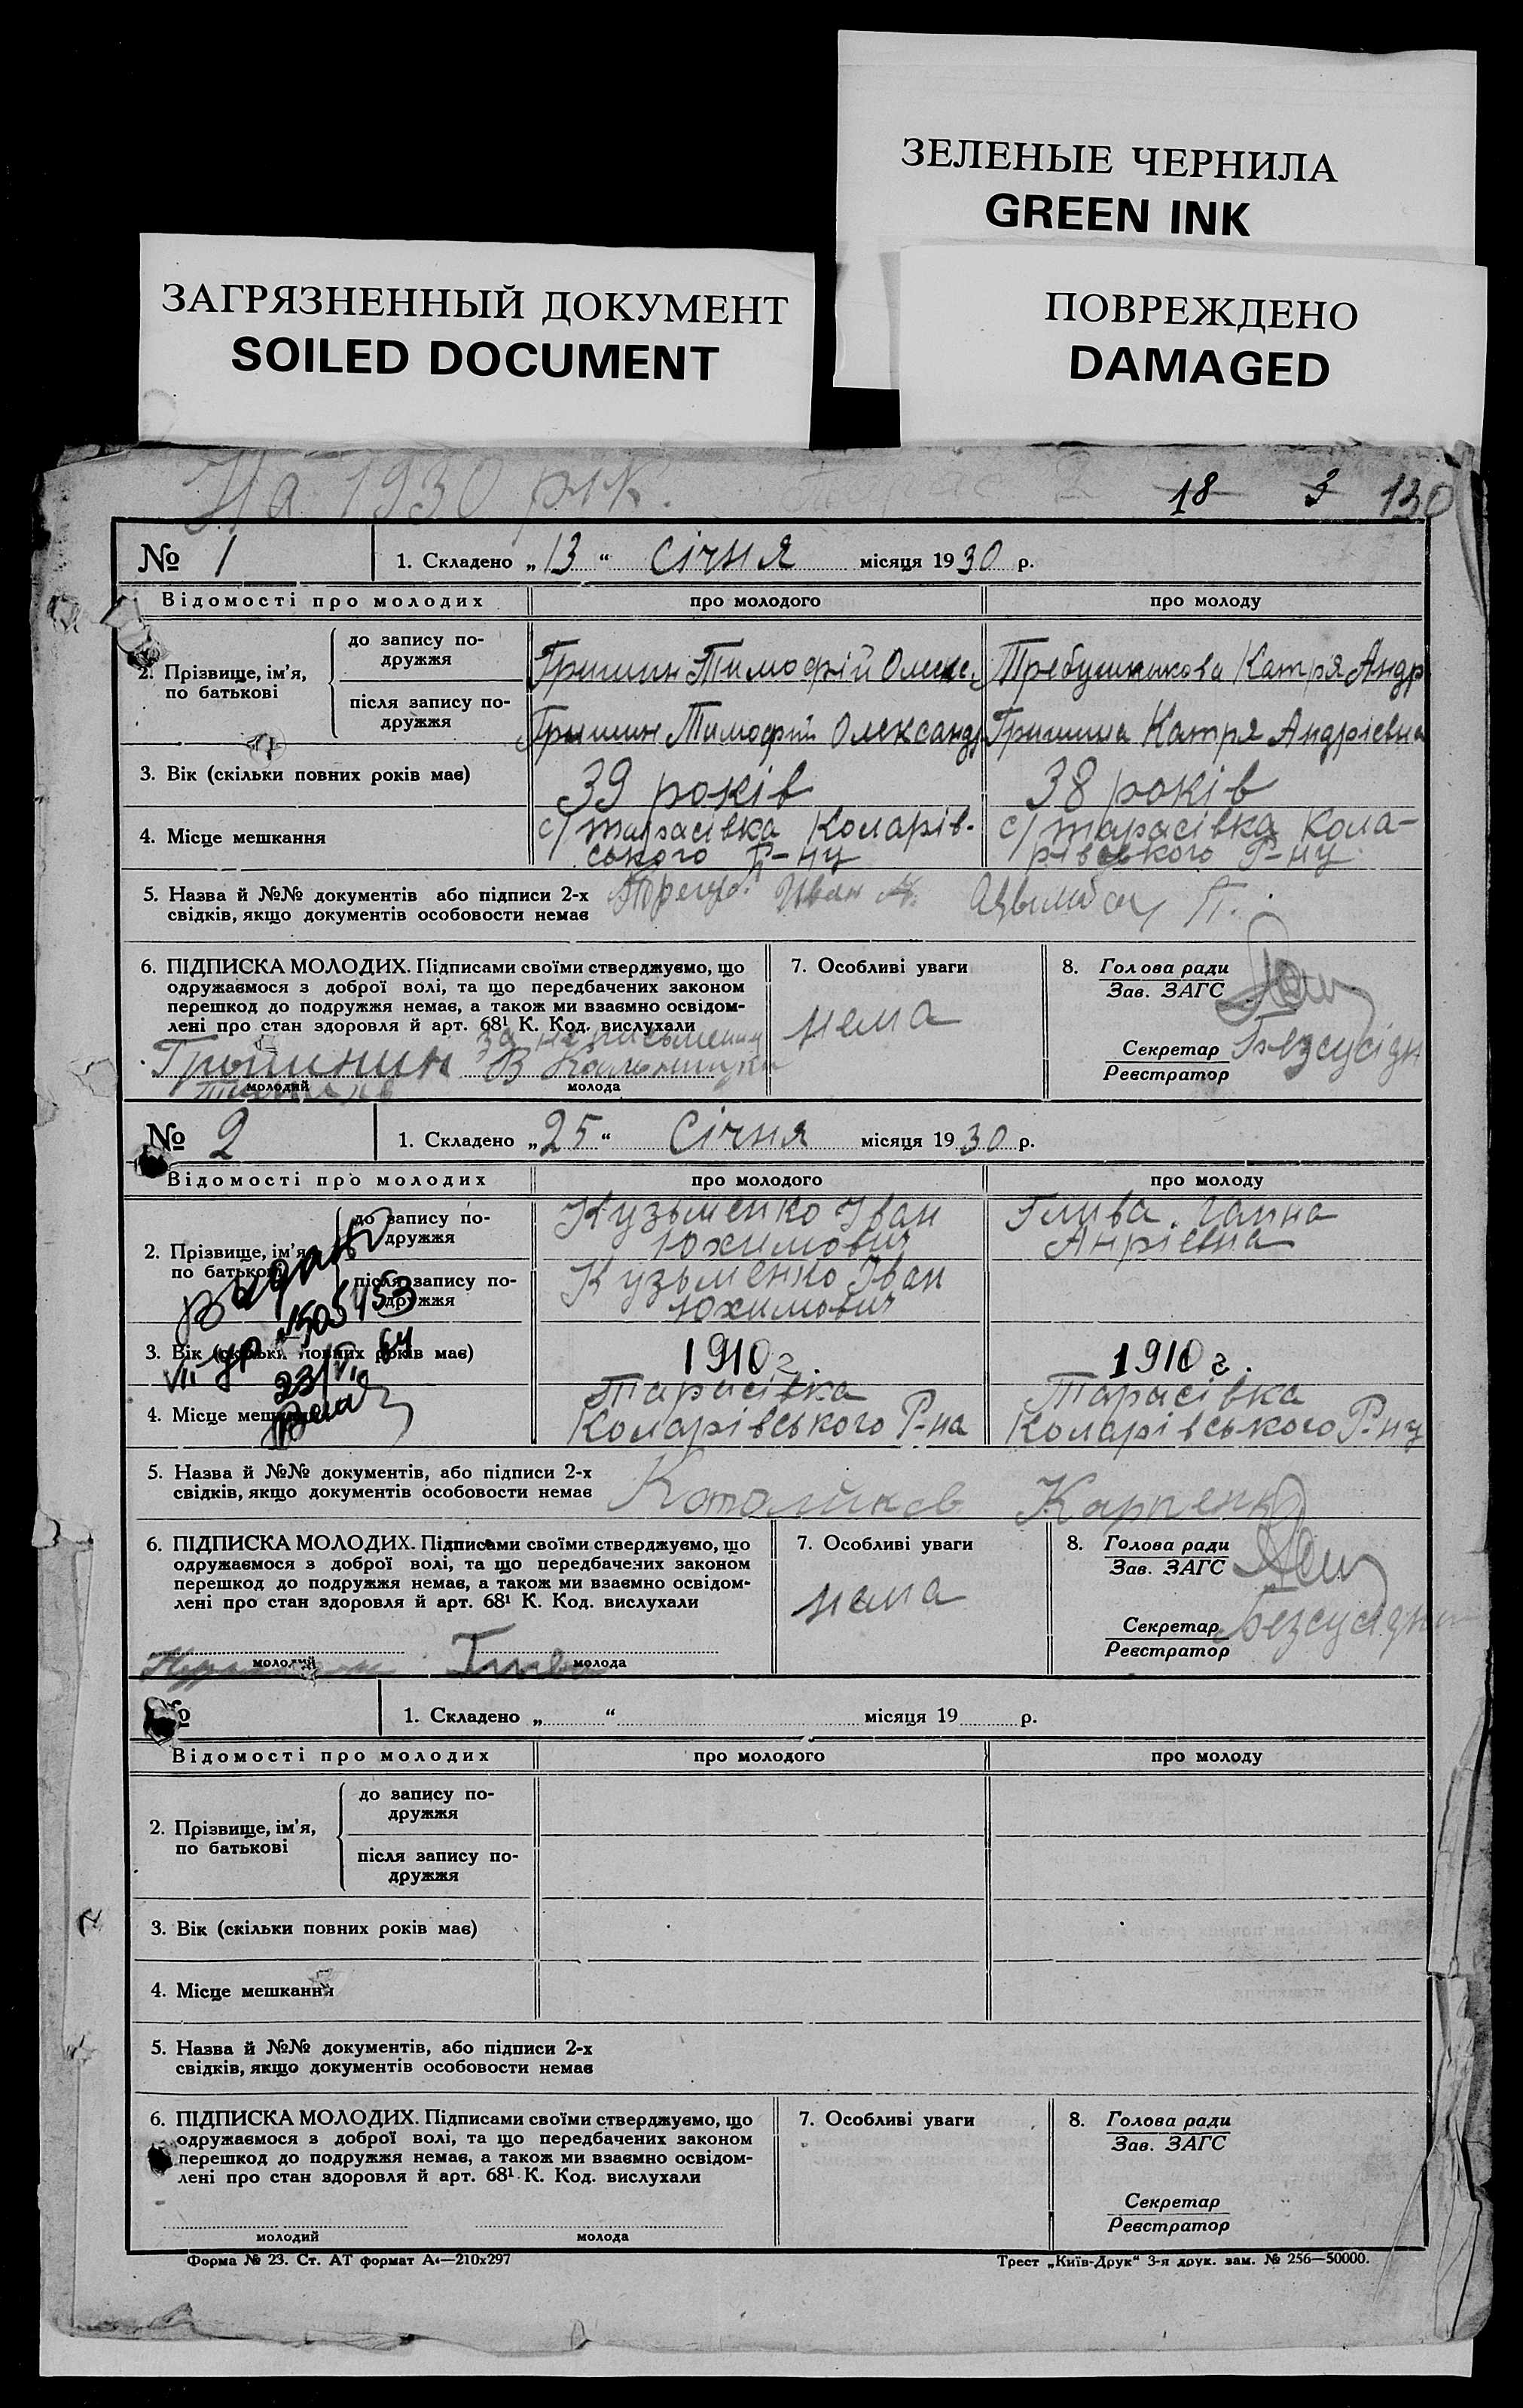 ЗЕЛЕНЫЕ ЧЕРНИЛА
GREEN INK
ЗАГРЯЗНЕННЫЙ ДОКУМЕНТ
SOILED DOCUMENT
ПОВРЕЖДЕНО
DAMAGED
На 1930 рік. 18 3 130
№ 1 1. Складено „13“ Січня місяця 1930 р.
Відомості про молодих про молодого про молоду
2. Прізвище, ім'я, по батькові
до запису подружжя Гришин Тимофій Олекс. Требушникова Катря Андр
після запису подружжя Гришин Тимофій Олександ Гришина Катря Андрієвна
3. Вік (скільки повних років має) 39 років 38 років
4. Місце мешкання с/Тарасівка Коларів- с/Тарасівка Кола-
ського Р-ну рівського Р-ну
5. Назва й №№ документів або підписи 2-х
свідків, якщо документів особовости немає Иван
6. ПІДПИСКА МОЛОДИХ. Підписами своїми стверджуємо, що
одружаємося з доброї волі, та що передбачених законом
перешкод до подружжя немає, а також ми взаємно освідом-
лені про стан здоров­ля й арт. 68¹ К. Код. вислухали
за
молодий молода
7. Особливі уваги
нема
8. Голова ради
Зав. ЗАГС
Секретар Безсусідн
Реєстратор
№ 2 1. Складено „25“ Січня місяця 1930 р.
Відомості про молодих про молодого про молоду
2. Прізвище, ім'я, по батькові
до запису подружжя Кузьменко Іван Глива Ганна
Юхимович Анрієвна
після запису подружжя Кузьменко Іван
Юхимович
Видано
VII
23/VII 64
3. Вік (скільки повних років має) 1910 г. 1910 г.
4. Місце мешкання Тарасівка Тарасівка
Коларівського Р-на Коларівського Р-ну
5. Назва й №№ документів, або підписи 2-х
свідків, якщо документів особовости немає Карпенко
6. ПІДПИСКА МОЛОДИХ. Підписами своїми стверджуємо, що
одружаємося з доброї волі, та що передбачених законом
перешкод до подружжя немає, а також ми взаємно освідом-
лені про стан здоровля й арт. 68¹ К. Код. вислухали
Глива
молодий молода
7. Особливі уваги
нема
8. Голова ради
Зав. ЗАГС
Секретар Безсусідн
Реєстратор
№ 1. Складено „ “ місяця 19 р.
Відомості про молодих про молодого про молоду
2. Прізвище, ім'я, по батькові
до запису подружжя
після запису подружжя
3. Вік (скільки повних років має)
4. Місце мешкання
5. Назва й №№ документів, або підписи 2-х
свідків, якщо документів особовости немає
6. ПІДПИСКА МОЛОДИХ. Підписами своїми стверджуємо, що
одружаємося з доброї волі, та що передбачених законом
перешкод до подружжя немає, а також ми взаємно освідом-
лені про стан здоровля й арт. 68¹ К. Код. вислухали
молодий молода
7. Особливі уваги
8. Голова ради
Зав. ЗАГС
Секретар
Реєстратор
Форма № 23. Ст. АТ формат А4—210х297 Трест „Київ-Друк“ 3-я друк. зам. № 256—50000.